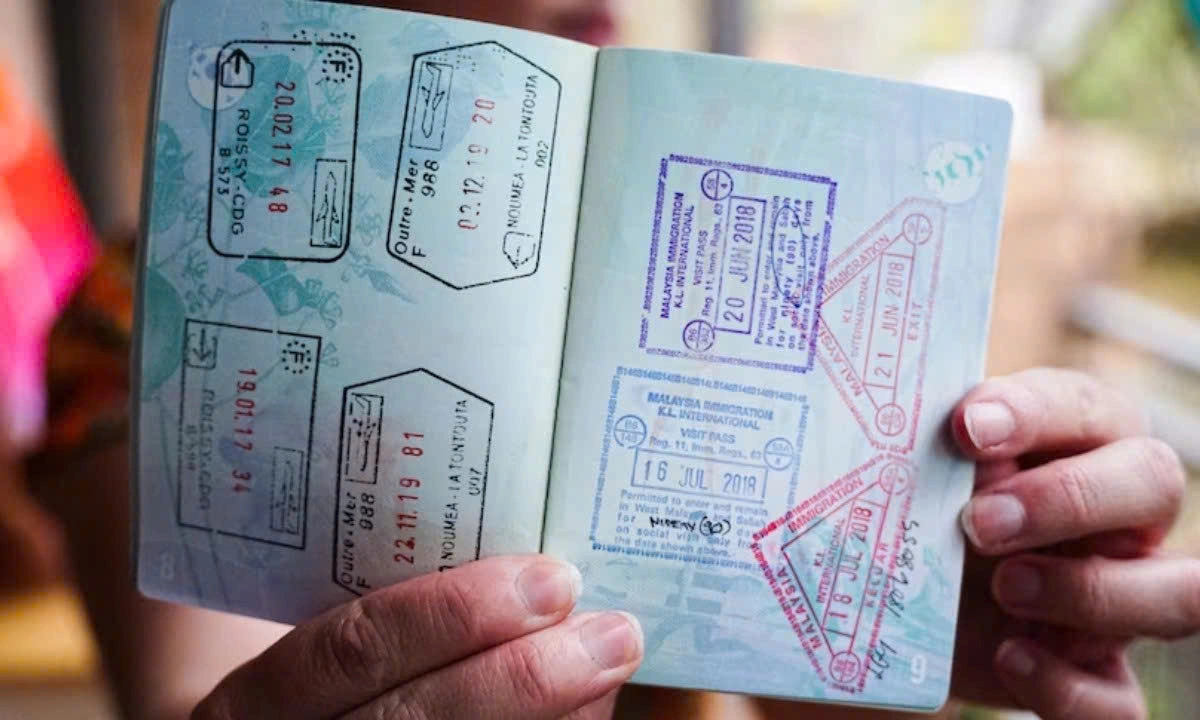 F
20.02.17 48
ROISSY-CDG
B 573
Outre-Mer
F 988
02.12.19 20
NOUMEA-LA TONTOUTA
002
F
19.01.17 34
ROISSY-CDG
Outre-Mer
F 988
22.11.19 81
NOUMEA-LA TONTOUTA
007
MALAYSIA IMMIGRATION
K.L. INTERNATIONAL
VISIT PASS
Reg. 11, Imm. Regs., 63
20 JUN 2018
Permitted to enter and remain
in West Malaysia and Sabah
for ninety (90) days
on social visit only from
the date shown above.
IMMIGRATION
K.L.
INTERNATIONAL
MALAYSIA
21 JUN 2018
EXIT
MALAYSIA IMMIGRATION
K.L. INTERNATIONAL
VISIT PASS
Reg. 11, Imm. Regs., 63
16 JUL 2018
Permitted to enter and remain
in West Malaysia Sabah
for NINETY (90) da
on social visit only from
the date shown above.
IMMIGRATION
K.L.
INTERNATIONAL
MALAYSIA
18 JUL 2018
KELUAR
8
9